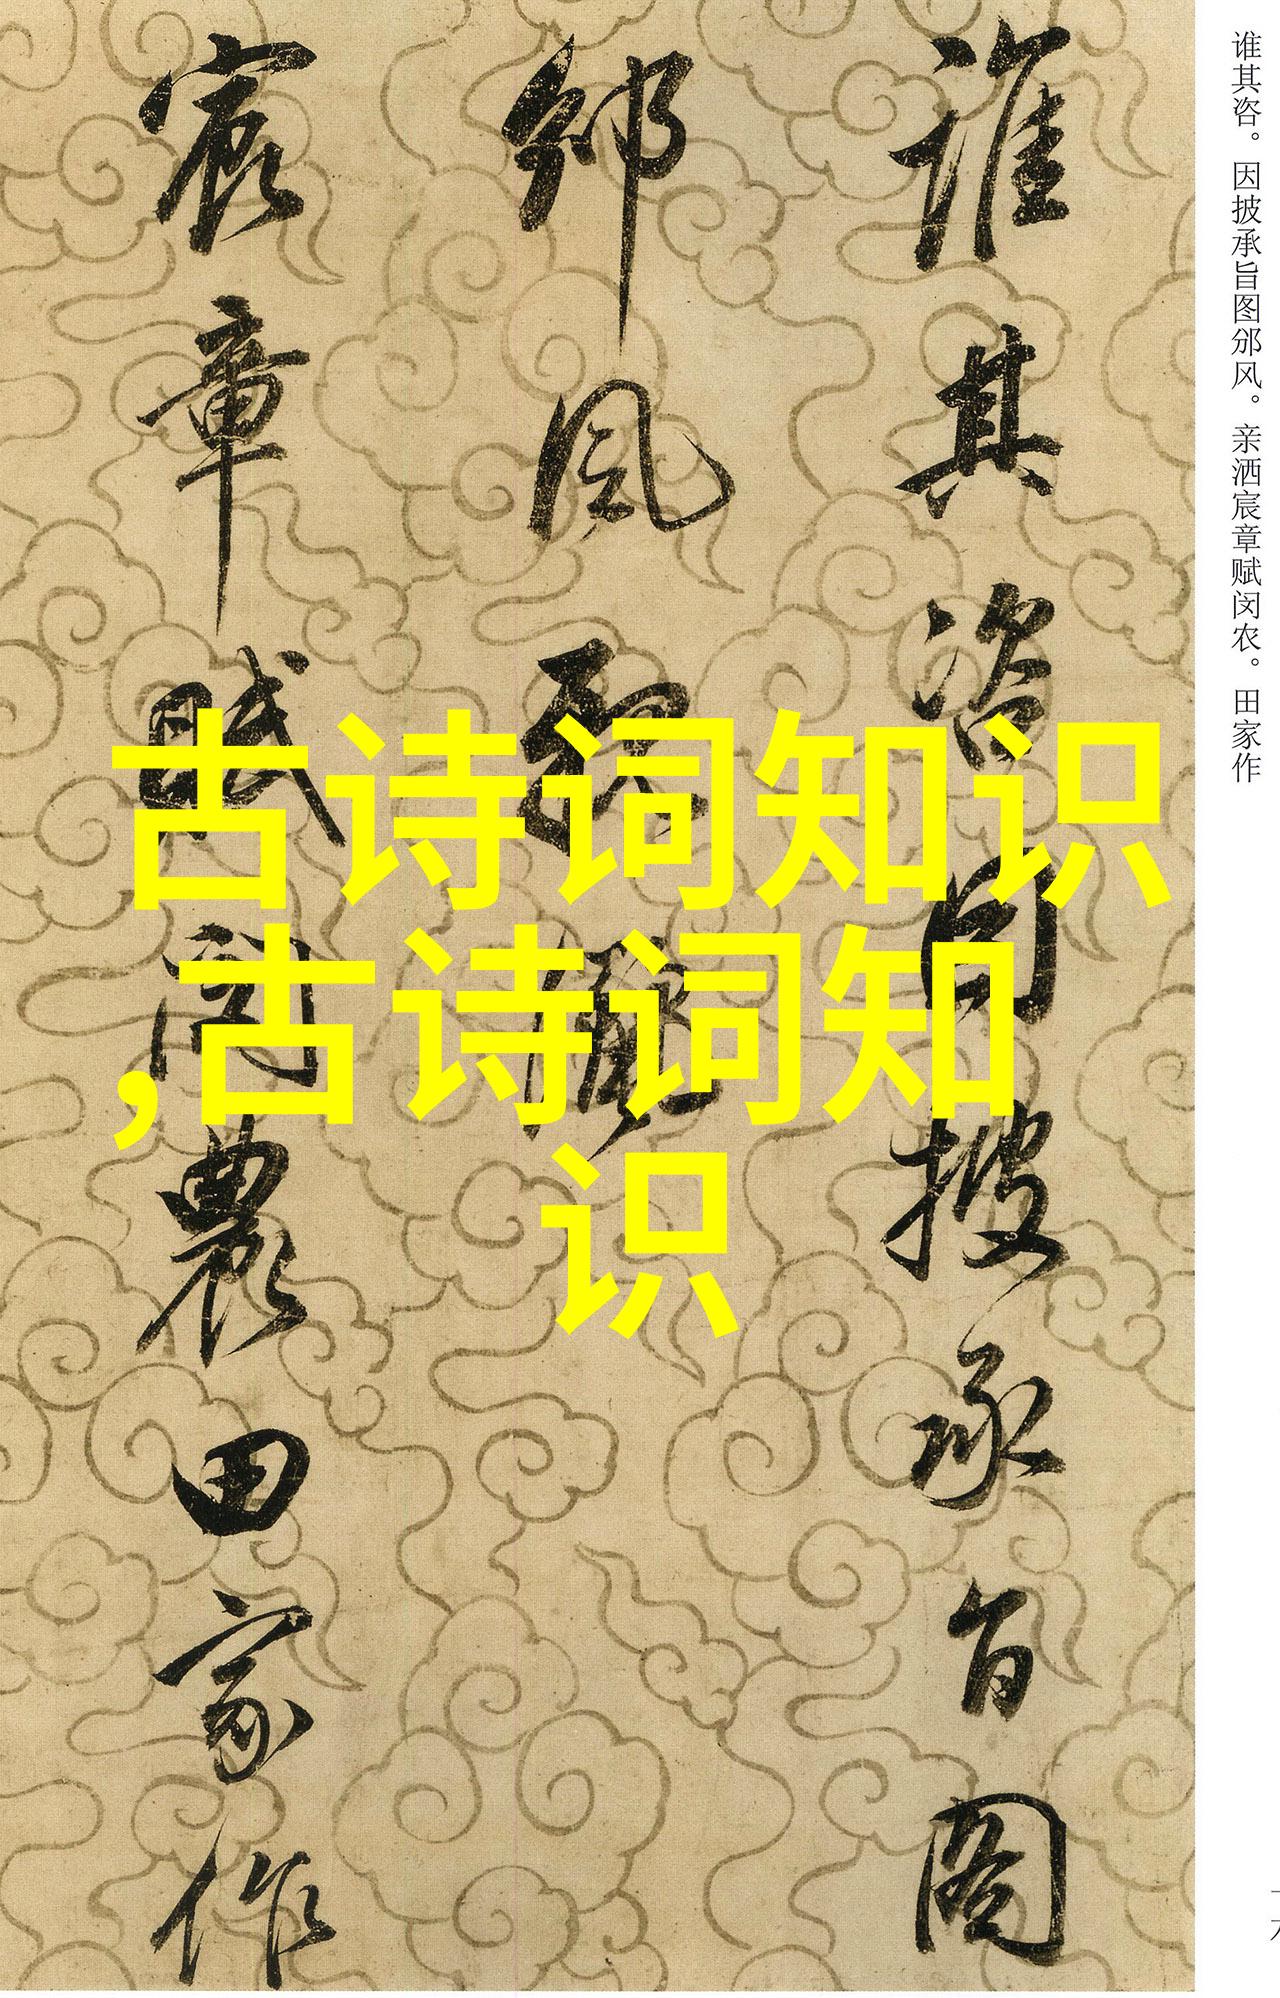 谁其咨。因披承旨图邠风。亲洒宸章赋闵农。田家作
誰其咨因披承旨圖
邠風親灑
宸章賦閔農田家作
古诗词知识
,古诗词知
识